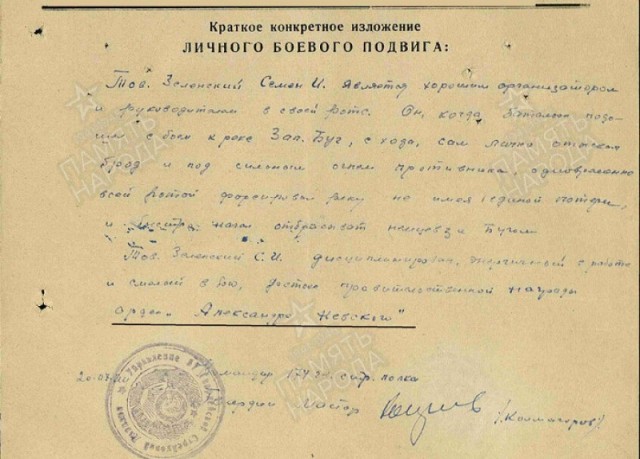 Краткое конкретное изложение
ЛИЧНОГО БОЕВОГО ПОДВИГА:
Тов. Зеленский Семен И. является хорошим организатором
и руководителем в своей роте. Он, когда батальон подо-
шел с боем к реке Зап. Буг, с хода, сам лично отыскал
брод и под сильным огнем противника, одновременно
всей ротой форсировал реку не имея единой потери,
и быстро начал отбрасывать немцев за Бугом
Тов. Зеленский С.И. дисциплинирован, энергичный в работе
и смелый в бою, достоин правительственной награды
орден „Александра Невского"
Командир 174 стр. полка
гвардии Майор
/Колмагоров/
ПАМЯТЬ
НАРОДА
ПАМЯТЬ
НАРОДА
ПАМЯТЬ
НАРОДА